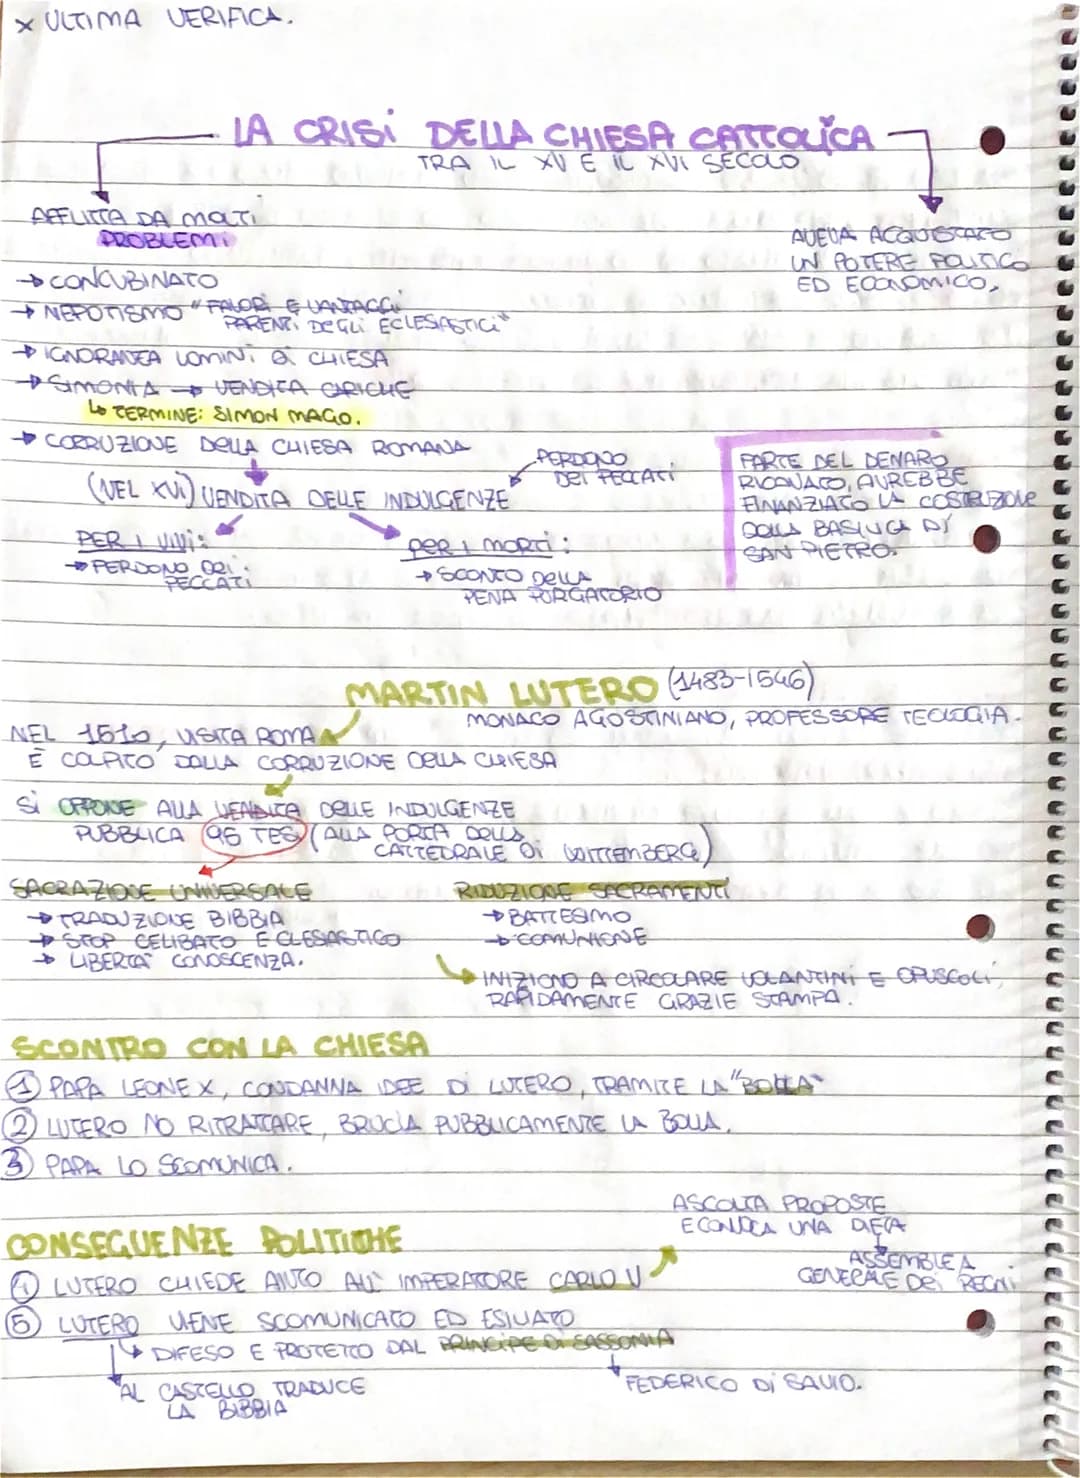 x ULTIMA VERIFICA.
LA CRISI DELLA CHIESA CATTOLICA
TRA IL XV E IL XVI SECOLO
AFFLITTA DA MOLTI
PROBLEMI
→ CONCUBINATO
→ NEPOTISMO "FAVORI E VANTAGGI
PARENTI DEGLI ECLESIASTICI"
→ IGNORANZA UOMINI DI CHIESA
→ SIMONIA → VENDITA CARICHE
↳ TERMINE: SIMON MAGO.
→ CORRUZIONE DELLA CHIESA ROMANA
(NEL XVI) VENDITA DELLE INDULGENZE
PERDONO
DEI PECCATI
PER I VIVI:
→ PERDONO DEI
PECCATI
PER I MORTI:
→ SCONTO DELLA
PENA PURGATORIO
AVEVA ACQUISTATO
UN POTERE POLITICO
ED ECONOMICO,
PARTE DEL DENARO
RICAVATO, AVREBBE
FINANZIATO LA COSTRUZIONE
DELLA BASILICA DI
SAN PIETRO.
MARTIN LUTERO (1483-1546)
MONACO AGOSTINIANO, PROFESSORE TEOLOGIA.
NEL 1510, VISITA ROMA
È COLPITO DALLA CORRUZIONE DELLA CHIESA
SI OPPONE ALLA VENDITA DELLE INDULGENZE
PUBBLICA 95 TESI (ALLA PORTA DELLA
CATTEDRALE DI WITTEMBERG)
SACRAZIONE UNIVERSALE
→ TRADUZIONE BIBBIA
→ STOP CELIBATO ECLESIASTICO
→ LIBERTÀ CONOSCENZA.
RIDUZIONE SACRAMENTI
→ BATTESIMO
→ COMUNIONE
↳ INIZIONO A CIRCOLARE VOLANTINI E OPUSCOLI,
RAPIDAMENTE GRAZIE STAMPA.
SCONTRO CON LA CHIESA
1 PAPA LEONE X, CONDANNA IDEE DI LUTERO, TRAMITE LA "BOLLA"
2 LUTERO NO RITRATTARE, BRUCIA PUBBLICAMENTE LA BOLLA.
3 PAPA LO SCOMUNICA.
CONSEGUENZE POLITICHE
ASCOLTA PROPOSTE
E CONVOCA UNA DIETA
ASSEMBLEA
GENERALE DEI REGNI
1 LUTERO CHIEDE AIUTO ALL' IMPERATORE CARLO V
5 LUTERO VIENE SCOMUNICATO ED ESILIATO
↳ DIFESO E PROTETTO DAL PRINCIPE DI SASSONIA
AL CASTELLO TRADUCE
LA BIBBIA
FEDERICO DI SAVIO.